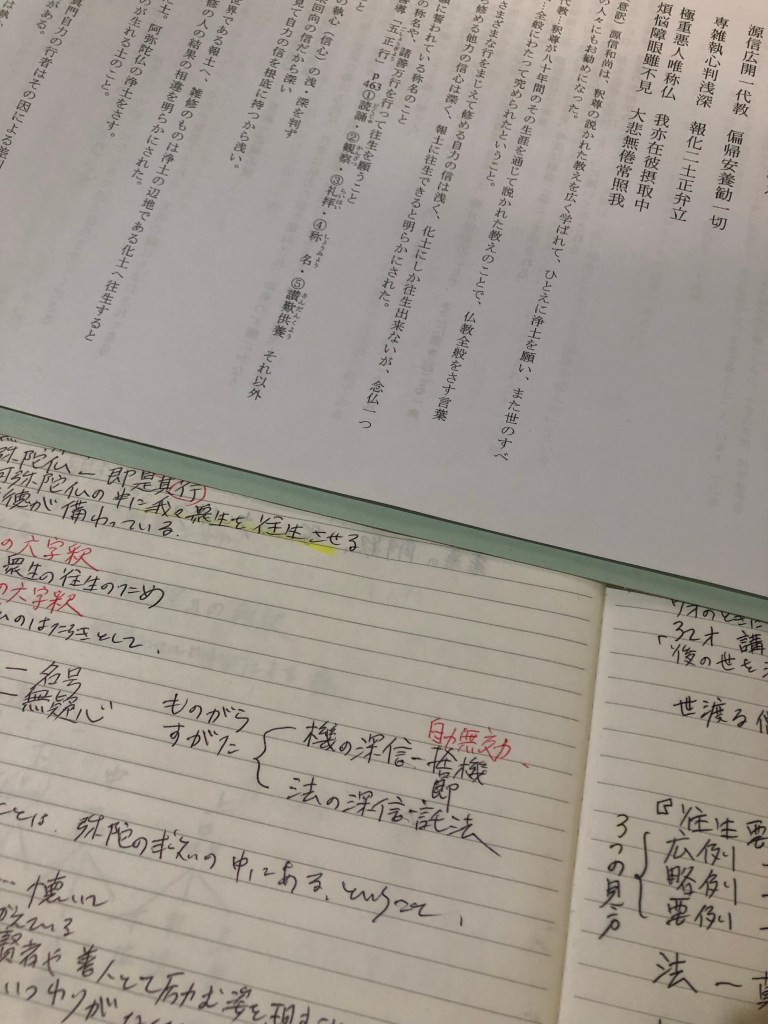 源信広開一代教　偏帰安養勧一切
専雑執心判浅深　報化二土正弁立
極重悪人唯称仏　我亦在彼摂取中
煩悩障眼雖不見　大悲無倦常照我
意訳）源信和尚は、釈尊の説かれた教えを広く学ばれて、ひとえに浄土を願い、また世のすべ
の人々にもお勧めになった。
代教…釈尊が八十年間のその生涯を通じて説かれた教えのことで、仏教全般をさす言葉
…全般にわたって究められたということ。
さまざまな行をまじえて修める自力の信は浅く、化土にしか往生出来ないが、念仏一つ
ら修める他力の信心は深く、報土に往生できると明らかにされた。
願に誓われている称名のこと
の称名や、諸善万行を行って往生を願うこと
導「五正行」 p463①読誦・②観察・③礼拝・④称名・⑤讃歎供養　それ以外
の執心（信心）の浅・深を判ず
回向の信だから深い
て自力の信を根底に持つから浅い。
世界である報土へ、雑修のものは浄土の辺地である化土へ往生すると
の人の結果の相違を明らかにされた。
土。阿弥陀仏の浄土をさす。
のが生れる土のこと。
自力の行者はその因による差別
がある。
弥陀仏 ー 即是其(行)
阿弥陀仏の中に我々衆生を往生させる
徳が備わっている.
の六字釈
衆生の往生のため
の六字釈
のはたらきとして、
ー 名号
ー 無疑心
ものがら
すがた
機の深信ー捨機
自力無効、
即
法の深信-託法
ことは、弥陀の救いの中にある、ということ、
… 懐いて
賢者や善人として励む姿を現
いつわりが
後の世を
世渡る
『往生要
3つの見方
広例 ー
略例 ー
要例 ー
法 ー 真